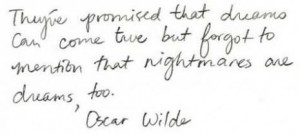 They've promised that dreams
Can come true but forgot to
mention that nightmares are
dreams, too.
Oscar Wilde